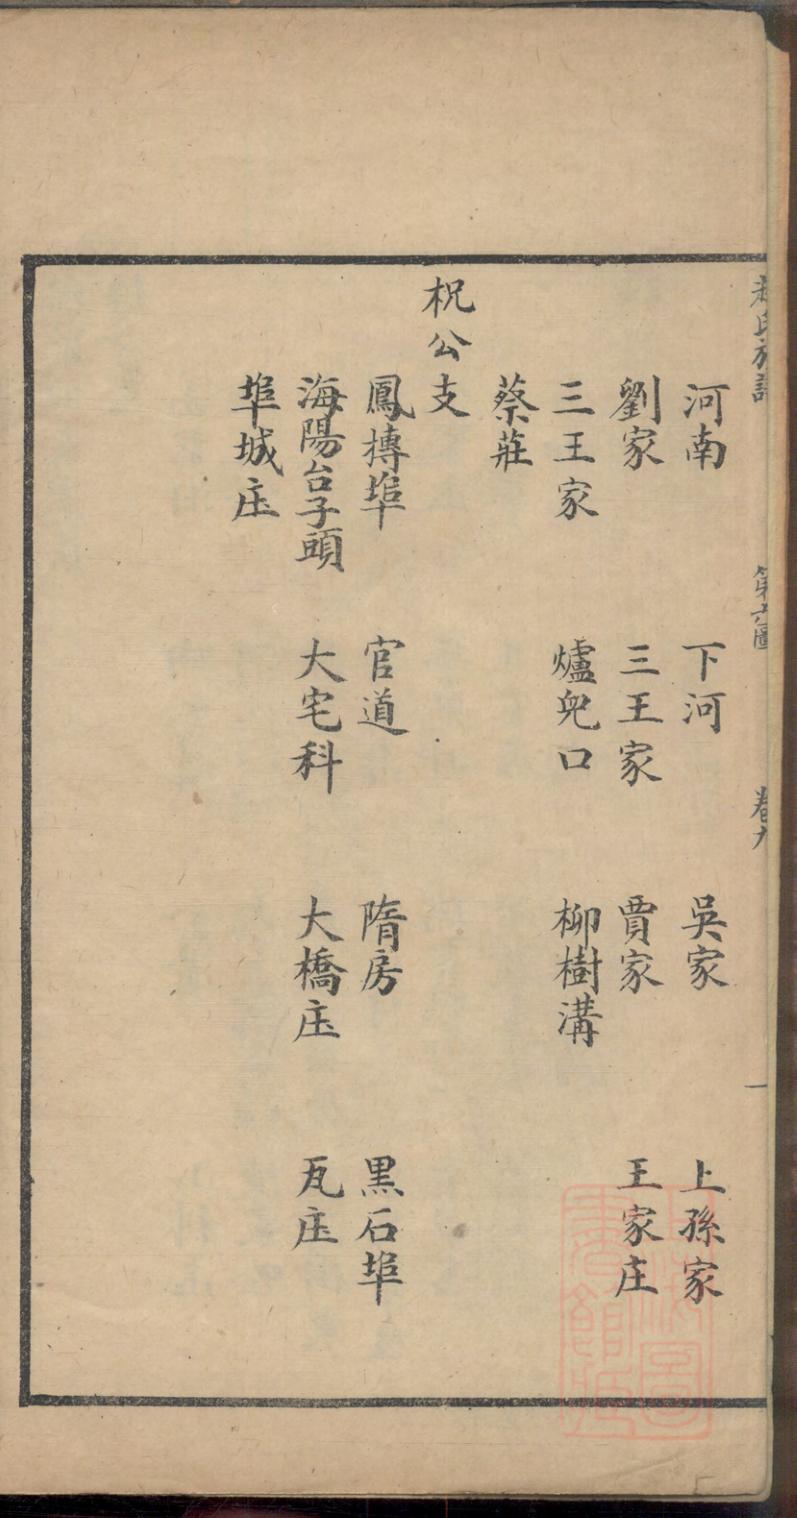 氏族譜 第六圖 卷九 一
河南 下河 吳家 上孫家
劉家 三王家 賈家 王家庄
三王家 爐兜口 柳樹溝
蔡莊
柷公支
鳳摶埠 官道 隋房 黑石埠
海陽台子頭 大宅科 大橋庄 瓦庄
埠城庄